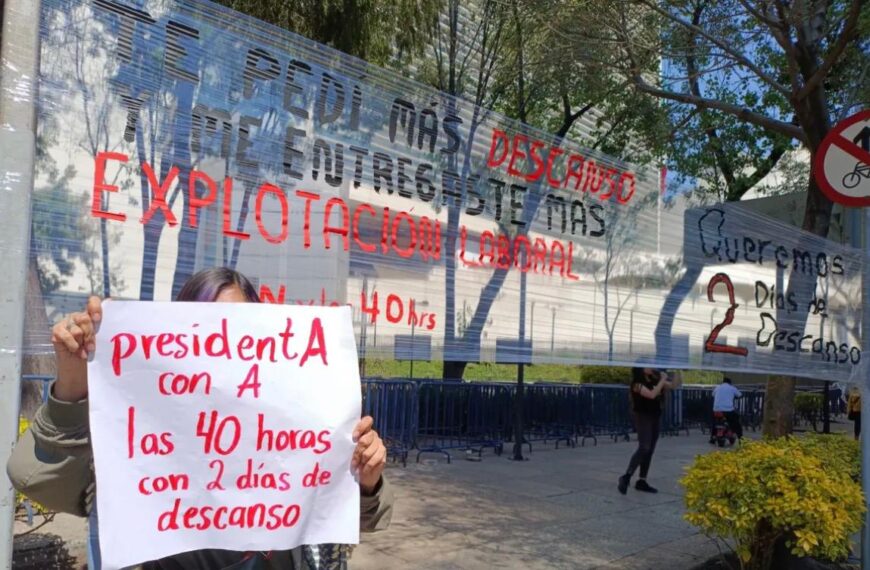 TE PEDÍ MÁS DESCANSO
Y ME ENTREGASTE MAS
EXPLOTACIÓN LABORAL
40 hrs
Queremos
2 Días de
Descanso
presidentA
con A
las 40 horas
con 2 días de
descanso